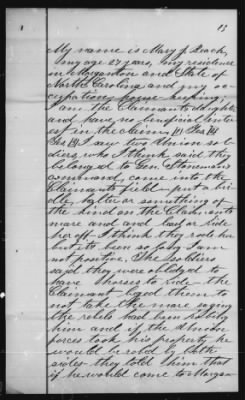 13
My name is Mary J. Beach,
my age 27 years, my residence
in Morganton and State of
North Carolina and my oc-
cupation, house-keeping.
I am the Claimants daughter
and have no beneficial inter-
est in the claim.
I saw two Union sol-
diers, who I think said they
belonged to Gen. Stoneman's
command, come into the
Claimants field - put a bri-
dle, halter or something of
the kind on the Claimants
mare and and lead or ride
her off - I think they rode her
but its been so long I am
not positive. The soldiers
said they were obliged to
have horses to ride - the
Claimant beged them to
not take the mare saying
the rebels had been robing
him and if the Union
forces took his property he
would be robed by both
sides - they told him that
if he would come to Morgan-